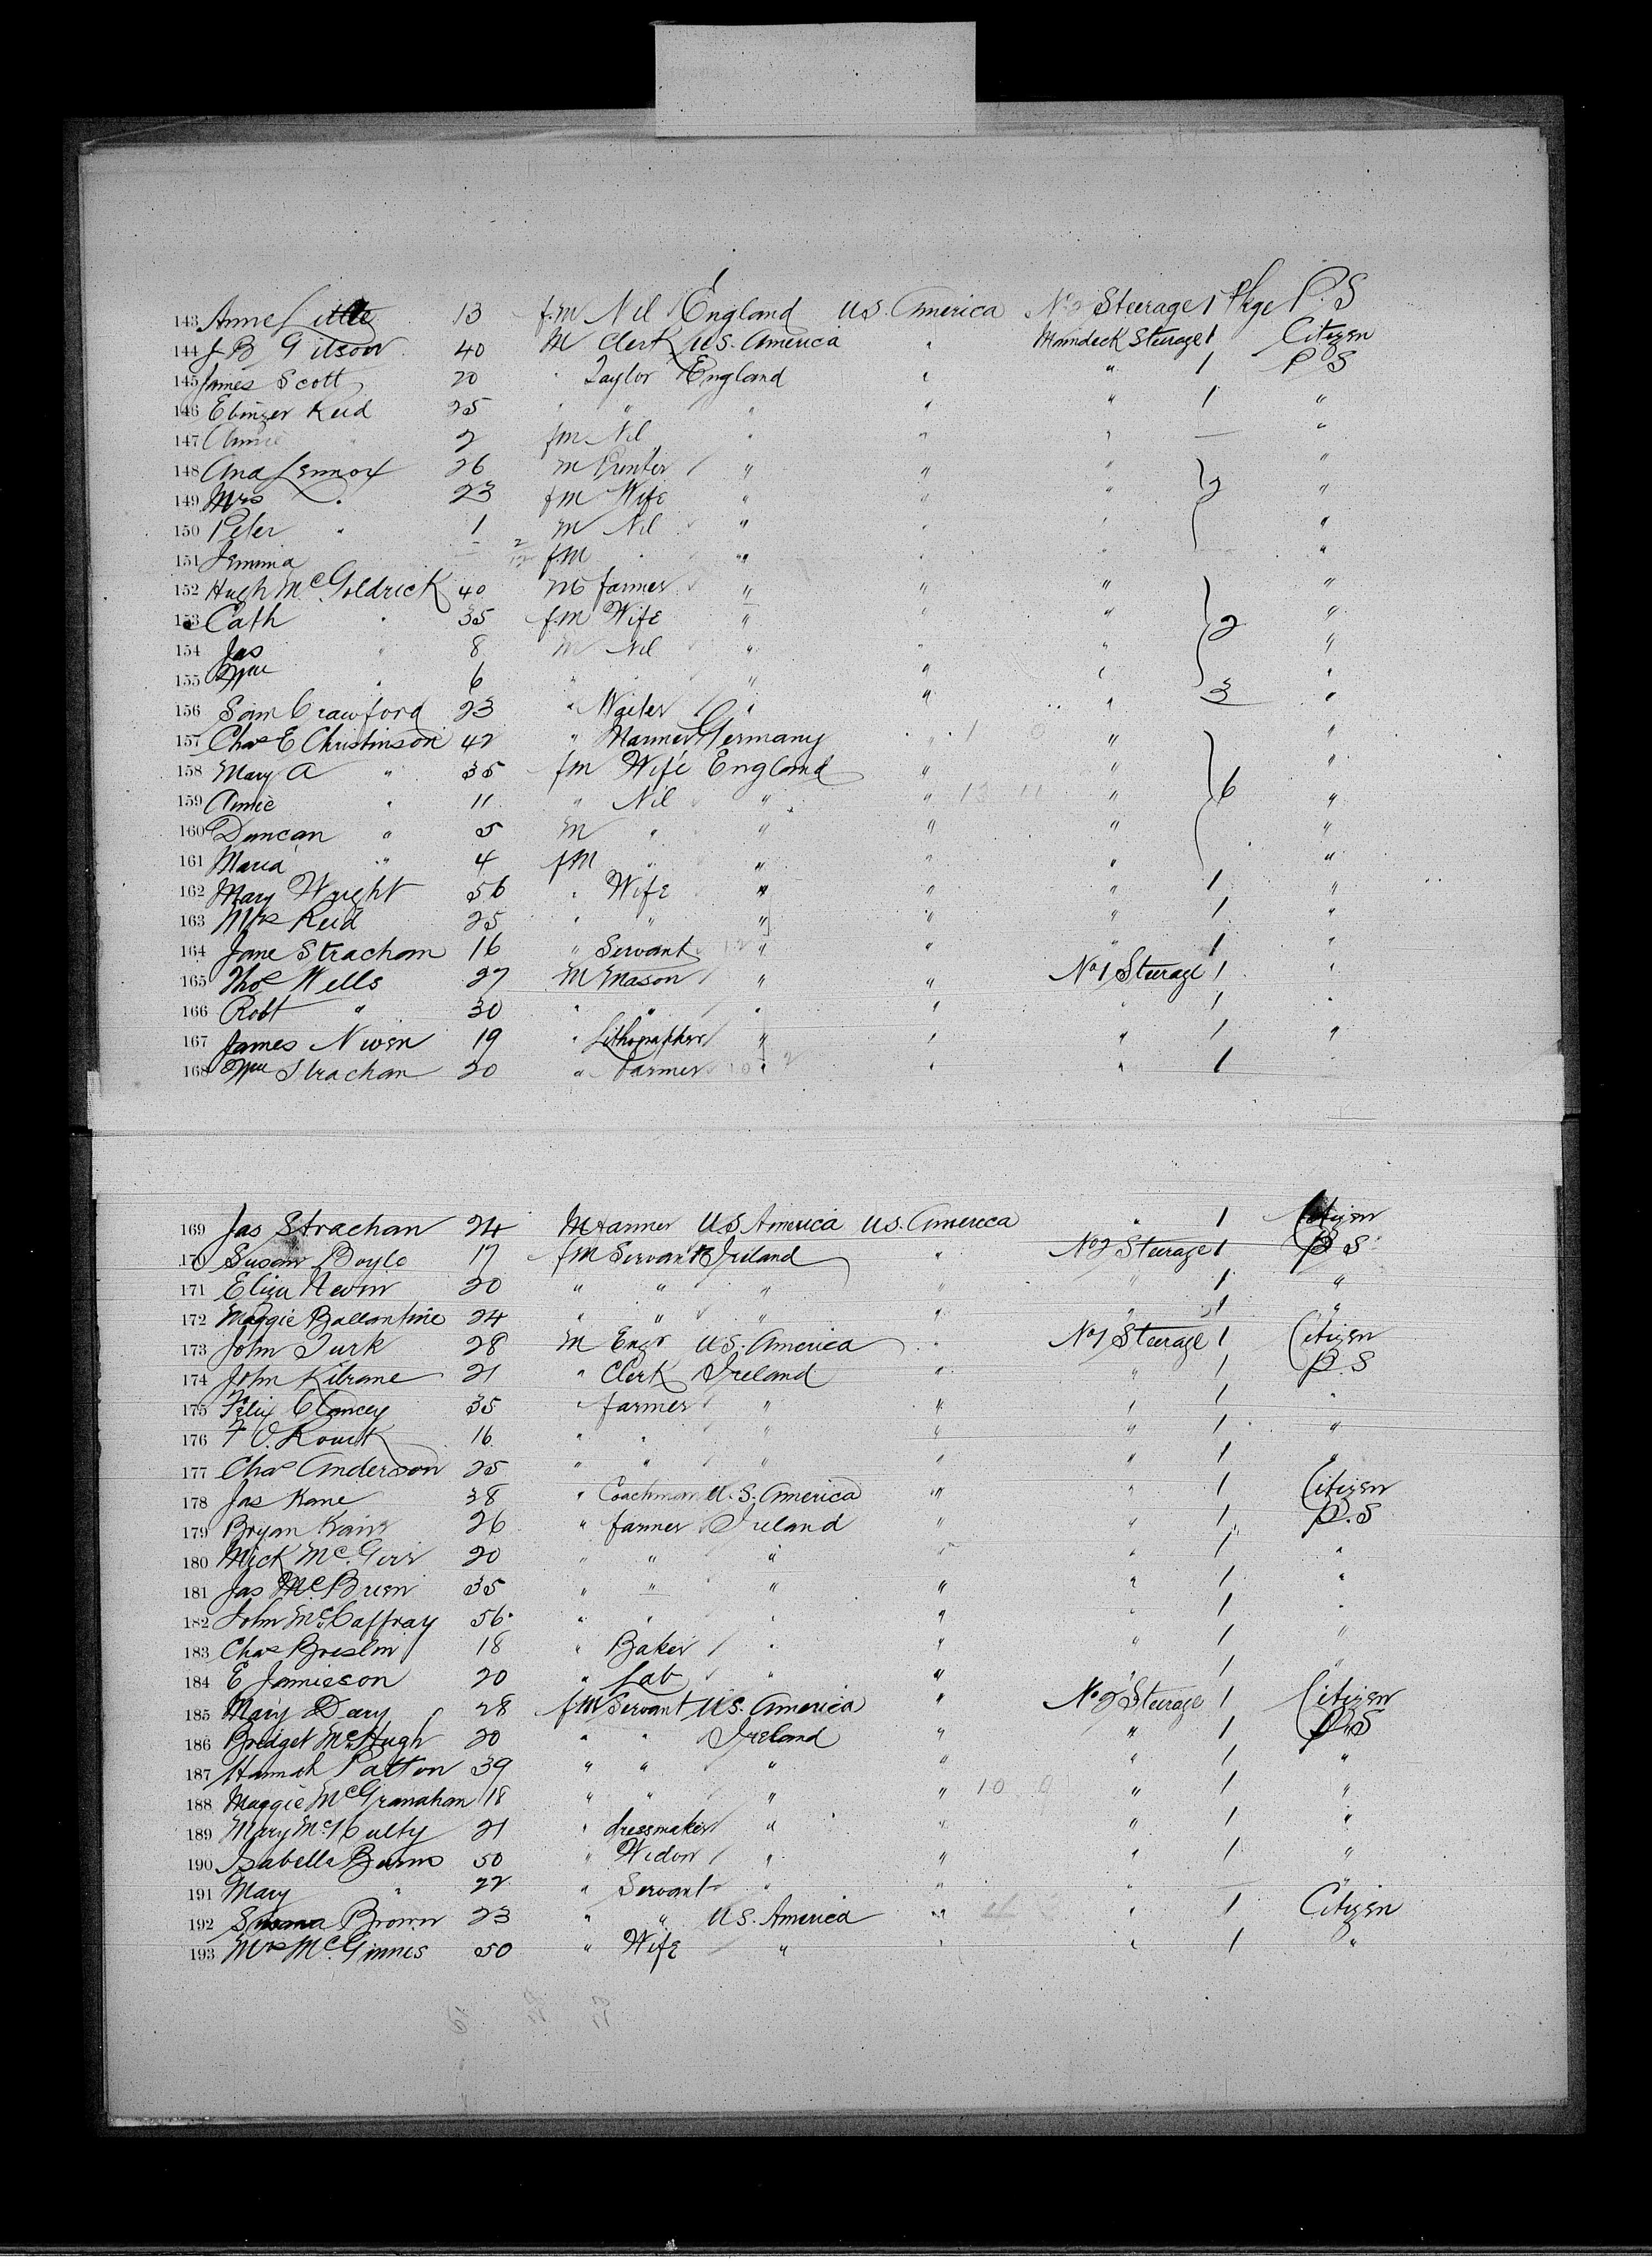 143 Anne Little 13 fm Nil England U.S. America No 2 Steerage 1 Pkge P.S
144 J B Gilson 40 M Clerk U.S. America " Maindeck Steerage 1 Citizen
145 James Scott 20 " Taylor England " " 1 P S
146 Ebinzer Reid 25 " " " " " 1 "
147 Annie " 2 fm Nil " " " — "
148 And Lennox 26 m Printer " " " "
149 Mrs " 23 fm Wife " " " 2 "
150 Peter " 1 m Nil " " " "
151 Jemima — 2/12 fm " " " " — "
152 Hugh McGoldrick 40 m farmer " " " "
153 Cath " 35 fm Wife " " " 2 "
154 Jas " 8 m Nil " " " "
155 Wm " 6 " " " " " "
156 Sam Crawford 23 " Waiter " " " 3 "
157 Chas E Christinson 42 " Mariner Germany " " "
158 Mary A " 35 fm Wife England " " "
159 Annie " 11 " Nil " " " 6 "
160 Duncan " 5 m " " " " "
161 Maria " 4 fm " " " " "
162 Mary Wright 56 " Wife " " " 1 "
163 Mrs Reid 25 " " " " " 1 "
164 Jane Strachan 16 " Servant " " " 1 "
165 Thos Wells 27 M Mason " " No 1 Steerage 1 "
166 Robt " 30 " " " " " 1 "
167 James Niven 19 " Lithographer " " " 1 "
168 Wm Strachan 20 " Farmer " " " 1 "
169 Jas Strachan 24 M Farmer U S America U.S. America " 1 Citizen
170 Susan Doyle 17 fm Servant Ireland " No 2 Steerage 1 P S
171 Eliza Nevin 20 " " " " " 1 "
172 Maggie Ballantine 24 " " " " " 1 "
173 John Turk 28 M Engr U.S. America " No 1 Steerage 1 Citizen
174 John Kilrane 21 " Clerk Ireland " " 1 P.S
175 Felix Clancey 35 " farmer " " " 1 "
176 F O.Rourk 16 " " " " " 1 "
177 Chas Anderson 25 " " " " " 1 "
178 Jas Kane 38 " Coachman U.S. America " " 1 Citizen
179 Bryan 26 " farmer Ireland " " 1 P.S
180 Mick McGirr 20 " " " " " 1 "
181 Jas McBrien 35 " " " " " 1 "
182 John McCaffray 56 " " " " " 1 "
183 Chas Breslin 18 " Baker " " " 1 "
184 E Jamieson 20 " Lab " " " 1 "
185 Mary Deary 28 fm Servant U.S. America " No 2 Steerage 1 Citizen
186 Bridget McHugh 20 " " Ireland " " 1 P.S
187 Hannah Patton 39 " " " " " 1 "
188 Maggie McGranahan 18 " " " " " 1 "
189 Mary McNulty 21 " dressmaker " " " 1 "
190 Isabella Burns 50 " Widow " " " 1 "
191 Mary " 22 " Servant " " " — "
192 Brown 23 " " U S. America " " 1 Citizen
193 Mrs McGinnes 50 " Wife " " " 1 "